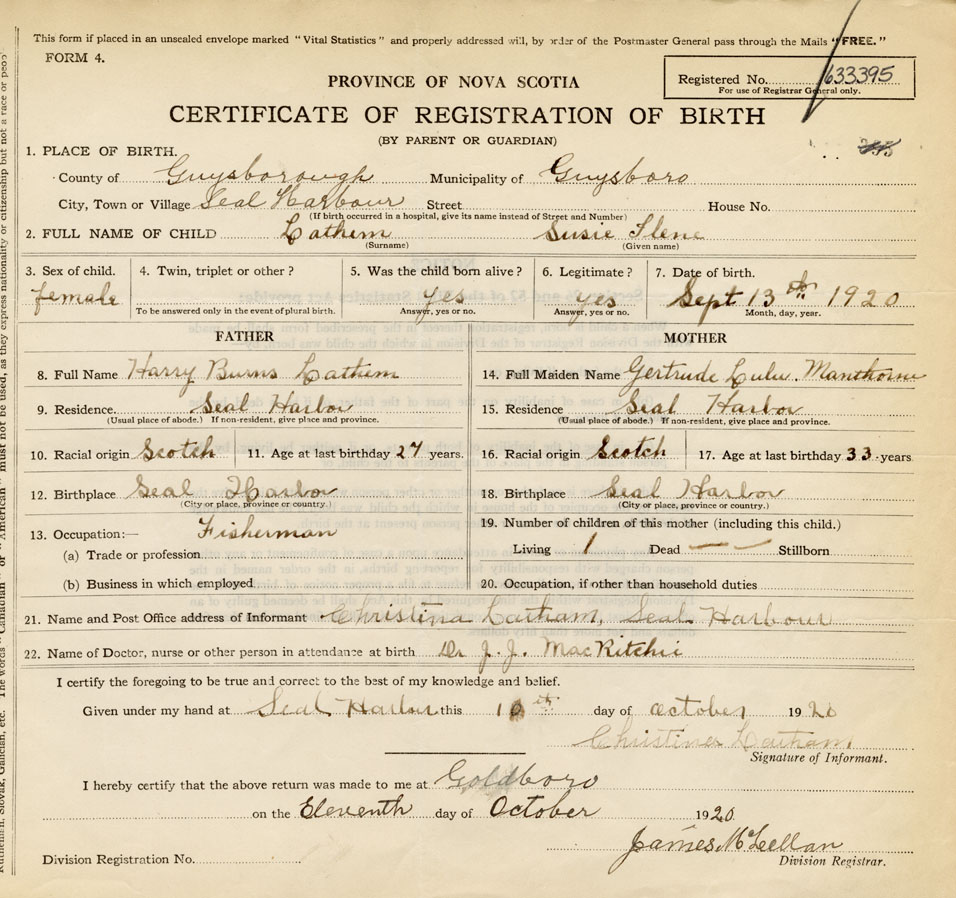 This form if placed in an unsealed envelope marked "Vital Statistics" and properly addressed will, by order of the Postmaster General pass through the Mails "FREE."
FORM 4.
Registered No. 633395
For use of Registrar General only.
PROVINCE OF NOVA SCOTIA
CERTIFICATE OF REGISTRATION OF BIRTH
(BY PARENT OR GUARDIAN)
1. PLACE OF BIRTH.
County of Guysborough Municipality of Guysboro
City, Town or Village Seal Harbour Street House No.
(If birth occurred in a hospital, give its name instead of Street and Number)
2. FULL NAME OF CHILD Lathem Susie Ilene
(Surname) (Given name)
3. Sex of child. 4. Twin, triplet or other? 5. Was the child born alive? 6. Legitimate? 7. Date of birth.
female yes yes Sept 13th 1920
To be answered only in the event of plural birth. Answer, yes or no. Answer, yes or no. Month, day, year.
FATHER MOTHER
8. Full Name Harry Burns Lathem 14. Full Maiden Name Gertrude Lulu Manthorne
9. Residence. Seal Harbor 15. Residence Seal Harbor
(Usual place of abode.) If non-resident, give place and province. (Usual place of abode.) If non-resident, give place and province.
10. Racial origin Scotch 11. Age at last birthday 27 years. 16. Racial origin Scotch 17. Age at last birthday 33 years
12. Birthplace Seal Harbor 18. Birthplace Seal Harbor
(City or place, province or country.) (City or place, province or country.)
13. Occupation:— Fisherman 19. Number of children of this mother (including this child.)
(a) Trade or profession Living 1 Dead — — Stillborn
(b) Business in which employed 20. Occupation, if other than household duties
21. Name and Post Office address of Informant Christina Latham, Seal Harbour
22. Name of Doctor, nurse or other person in attendance at birth Dr J. J. MacRitchie
I certify the foregoing to be true and correct to the best of my knowledge and belief.
Given under my hand at Seal Harbor this 10th day of october 1920
Christina Latham
Signature of Informant.
I hereby certify that the above return was made to me at Goldboro
on the Eleventh day of October 1920
James McLellan
Division Registration No. Division Registrar.